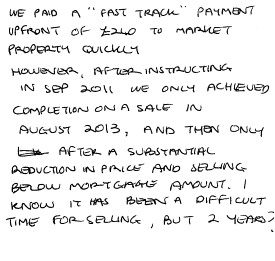 WE PAID A "FAST TRACK" PAYMENT
UPFRONT OF £240 TO MARKET
PROPERTY QUICKLY
HOWEVER, AFTER INSTRUCTING
IN SEP 2011 WE ONLY ACHIEVED
COMPLETION ON A SALE IN
AUGUST 2013, AND THEN ONLY
AFTER A SUBSTANTIAL
REDUCTION IN PRICE AND SELLING
BELOW MORTGAGE AMOUNT. I
KNOW IT HAS BEEN A DIFFICULT
TIME FOR SELLING, BUT 2 YEARS?